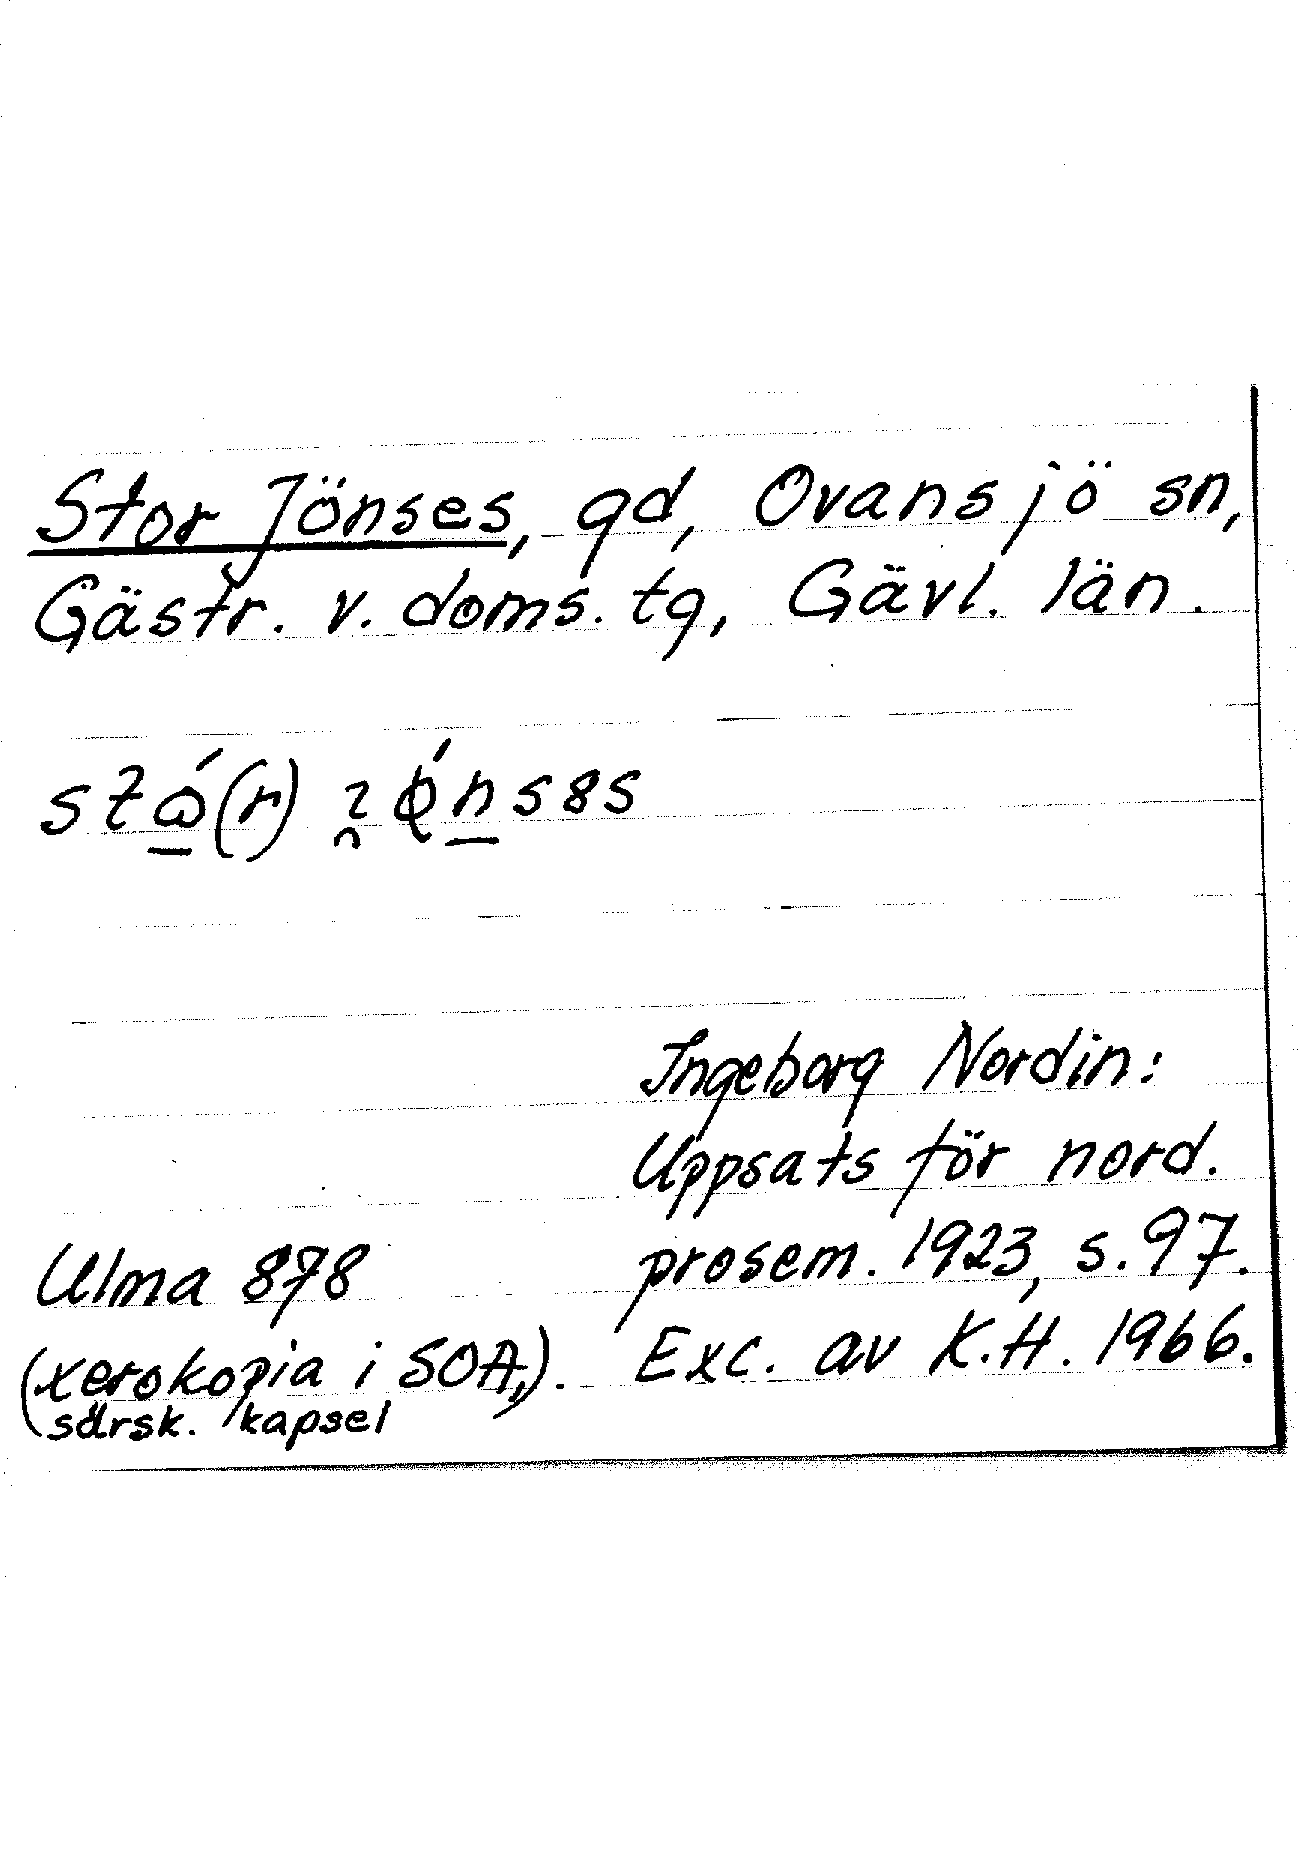 Stor Jönses, gd, Ovansjö sn,
Gästr. v. doms. tg, Gävl. län.
Ingeborg Nordin:
Uppsats för nord.
prosem. 1923, s. 97.
Exc. av K.H. 1966.
Ulma 878
(xerokopia i SOA,).
särsk. kapsel